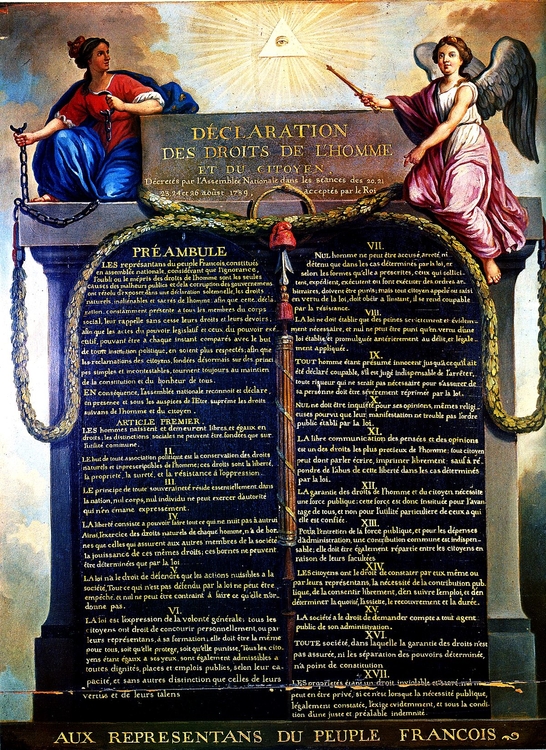 DÉCLARATION
DES DROITS DE L'HOMME
ET DU CITOYEN,
Décretés par l'Assemblée Nationale dans les séances des 20, 21
23, 24 et 26 aoûst 1789, acceptés par le Roi
PRÉAMBULE
LES représentans du peuple Francois, constitués
en assemblée nationale, considérant que l'ignorance,
l'oubli ou le mépris des droits de l'homme sont les seules
causes des malheurs publics et de la corruption des gouvernemens
ont résolu d'exposer dans une déclaration solemnelle, les droits
naturels, inaliénables et sacrés de l'homme; afin que cette décla
ration, constamment présente a tous les membres du corps
social, leur rappelle sans cesse leurs droits et leurs devoirs;
afin que les actes du pouvoir législatif et ceux du pouvoir exé
cutif, pouvant être a chaque instant comparés avec le but
de toute institution politique, en soient plus respectés; afin que
les réclamations des citoyens, fondées désormais sur des prin
pes simples et incontestables, tournent toujours au maintien
de la constitution et du bonheur de tous.
EN conséquence, l'assemblée nationale reconnoit et déclare,
en presence et sous les auspices de l'Etre suprême les droits
suivans de l'homme et du citoyen.
ARTICLE PREMIER.
LES hommes naissent et demeurent libres et égaux en
droits; les distinctions sociales ne peuvent être fondées que sur
l'utilité commune.
II.
LE but de toute association politique est la conservation des droits
naturels et inprescriptibles de l'homme; ces droits sont la liberté,
la propriété, la sureté, et la résistance à l'oppression.
III.
LE principe de toute souveraineté réside essentiellement dans
la nation, nul corps, nul individu ne peut exercer d'autorité
qui n'en émane expressement.
IV.
LA liberté consiste a pouvoir faire tout ce qui ne nuit pas à autrui
Ainsi, l'exercice des droits naturels de chaque homme, n'a de bor
nes que celles qui assurent aux autres membres de la société
la jouissance de ces mêmes droits; ces bornes ne peuvent
être déterminées que par la loi
V.
LA loi n'a le droit de défendre que les actions nuisibles à la
société. Tout ce qui n'est pas défendu par la loi ne peut être
empêché, et nul ne peut être contraint à faire ce qu'elle n'or
donne pas.
VI.
LA loi est l'expression de la volonté générale; tous les
citoyens ont droit de concourir personnellement, ou par
leurs représentans, à sa formation; elle doit être la même
pour tous, soit qu'elle protege, soit qu'elle punisse. Tous les cito
yens étant égaux à ses yeux, sont également admissibles a
toutes dignités, places et emplois publics, selon leur ca
pacité, et sans autres distinction que celles de leurs
vertus et de leurs talens
VII.
NUL homme ne peut être accusé, arreté, ni
détenu que dans les cas déterminés par la loi, et
selon les formes qu'elle a prescrites, ceux qui sollici
tent, expédient, exécutent ou font exécuter des ordres ar
bitraires, doivent être punis; mais tout citoyen appelé ou saisi
en vertu de la loi, doit obéir a l'instant, il se rend coupable
par la résistance.
VIII.
LA loi ne doit établir que des peines strictement et évidem
ment nécessaire, et nul ne peut être puni qu'en vertu d'une
loi établie et promulguée antérieurement au délit, et légale
ment appliquée.
IX.
TOUT homme étant présumé innocent jusqu'a ce qu'il ait
été déclaré coupable, s'il est jugé indispensable de l'arrêter,
toute rigueur qui ne serait pas nécessaire pour s'assurer de
sa personne doit être sévèrement réprimée par la loi.
X.
NUL ne doit être inquiété pour ses opinions, mêmes religi
euses pourvu que leur manifestation ne trouble pas l'ordre
public établi par la loi.
XI.
LA libre communication des pensées et des opinions
est un des droits les plus precieux de l'homme; tout citoyen
peut donc parler écrire, imprimer librement: sauf à ré
pondre de l'abus de cette liberté dans les cas déterminés
par la loi.
XII.
LA garantie des droits de l'homme et du citoyen, nécessite
une force publique; cette force est donc instituée pour l'avan
tage de tous, et non pour l'utilité particuliere de ceux a qui
elle est confiée.
XIII.
Pour l'entretien de la force publique, et pour les dépenses
d'administration, une contribution commune est indispen-
sable; elle doit être également répartie entre les citoyens en
raison de leurs facultées
XIV.
LES citoyens ont le droit de constater par eux même ou
par leurs représentans, la nécessité de la contribution pub
lique, de la consentir librement, d'en suivre l'emploi, et d'en
déterminer la quotité, l'assiette, le recouvrement et la durée.
XV.
LA société a le droit de demander compte a tout agent
public de son administration.
XVI.
TOUTE société, dans laquelle la garantie des droits n'est
pas assurée, ni les séparation des pouvoirs déterminée,
n'a point de constitution
XVII.
LES propriétés étant un droit inviolable et sacré, nul ne
peut en être privé, si ce n'est lorsque la nécessité publique,
légalement constatée, l'exige evidemment, et sous la condi
tion d'une juste et préalable indemnité.
AUX REPRESENTANS DU PEUPLE FRANCOIS